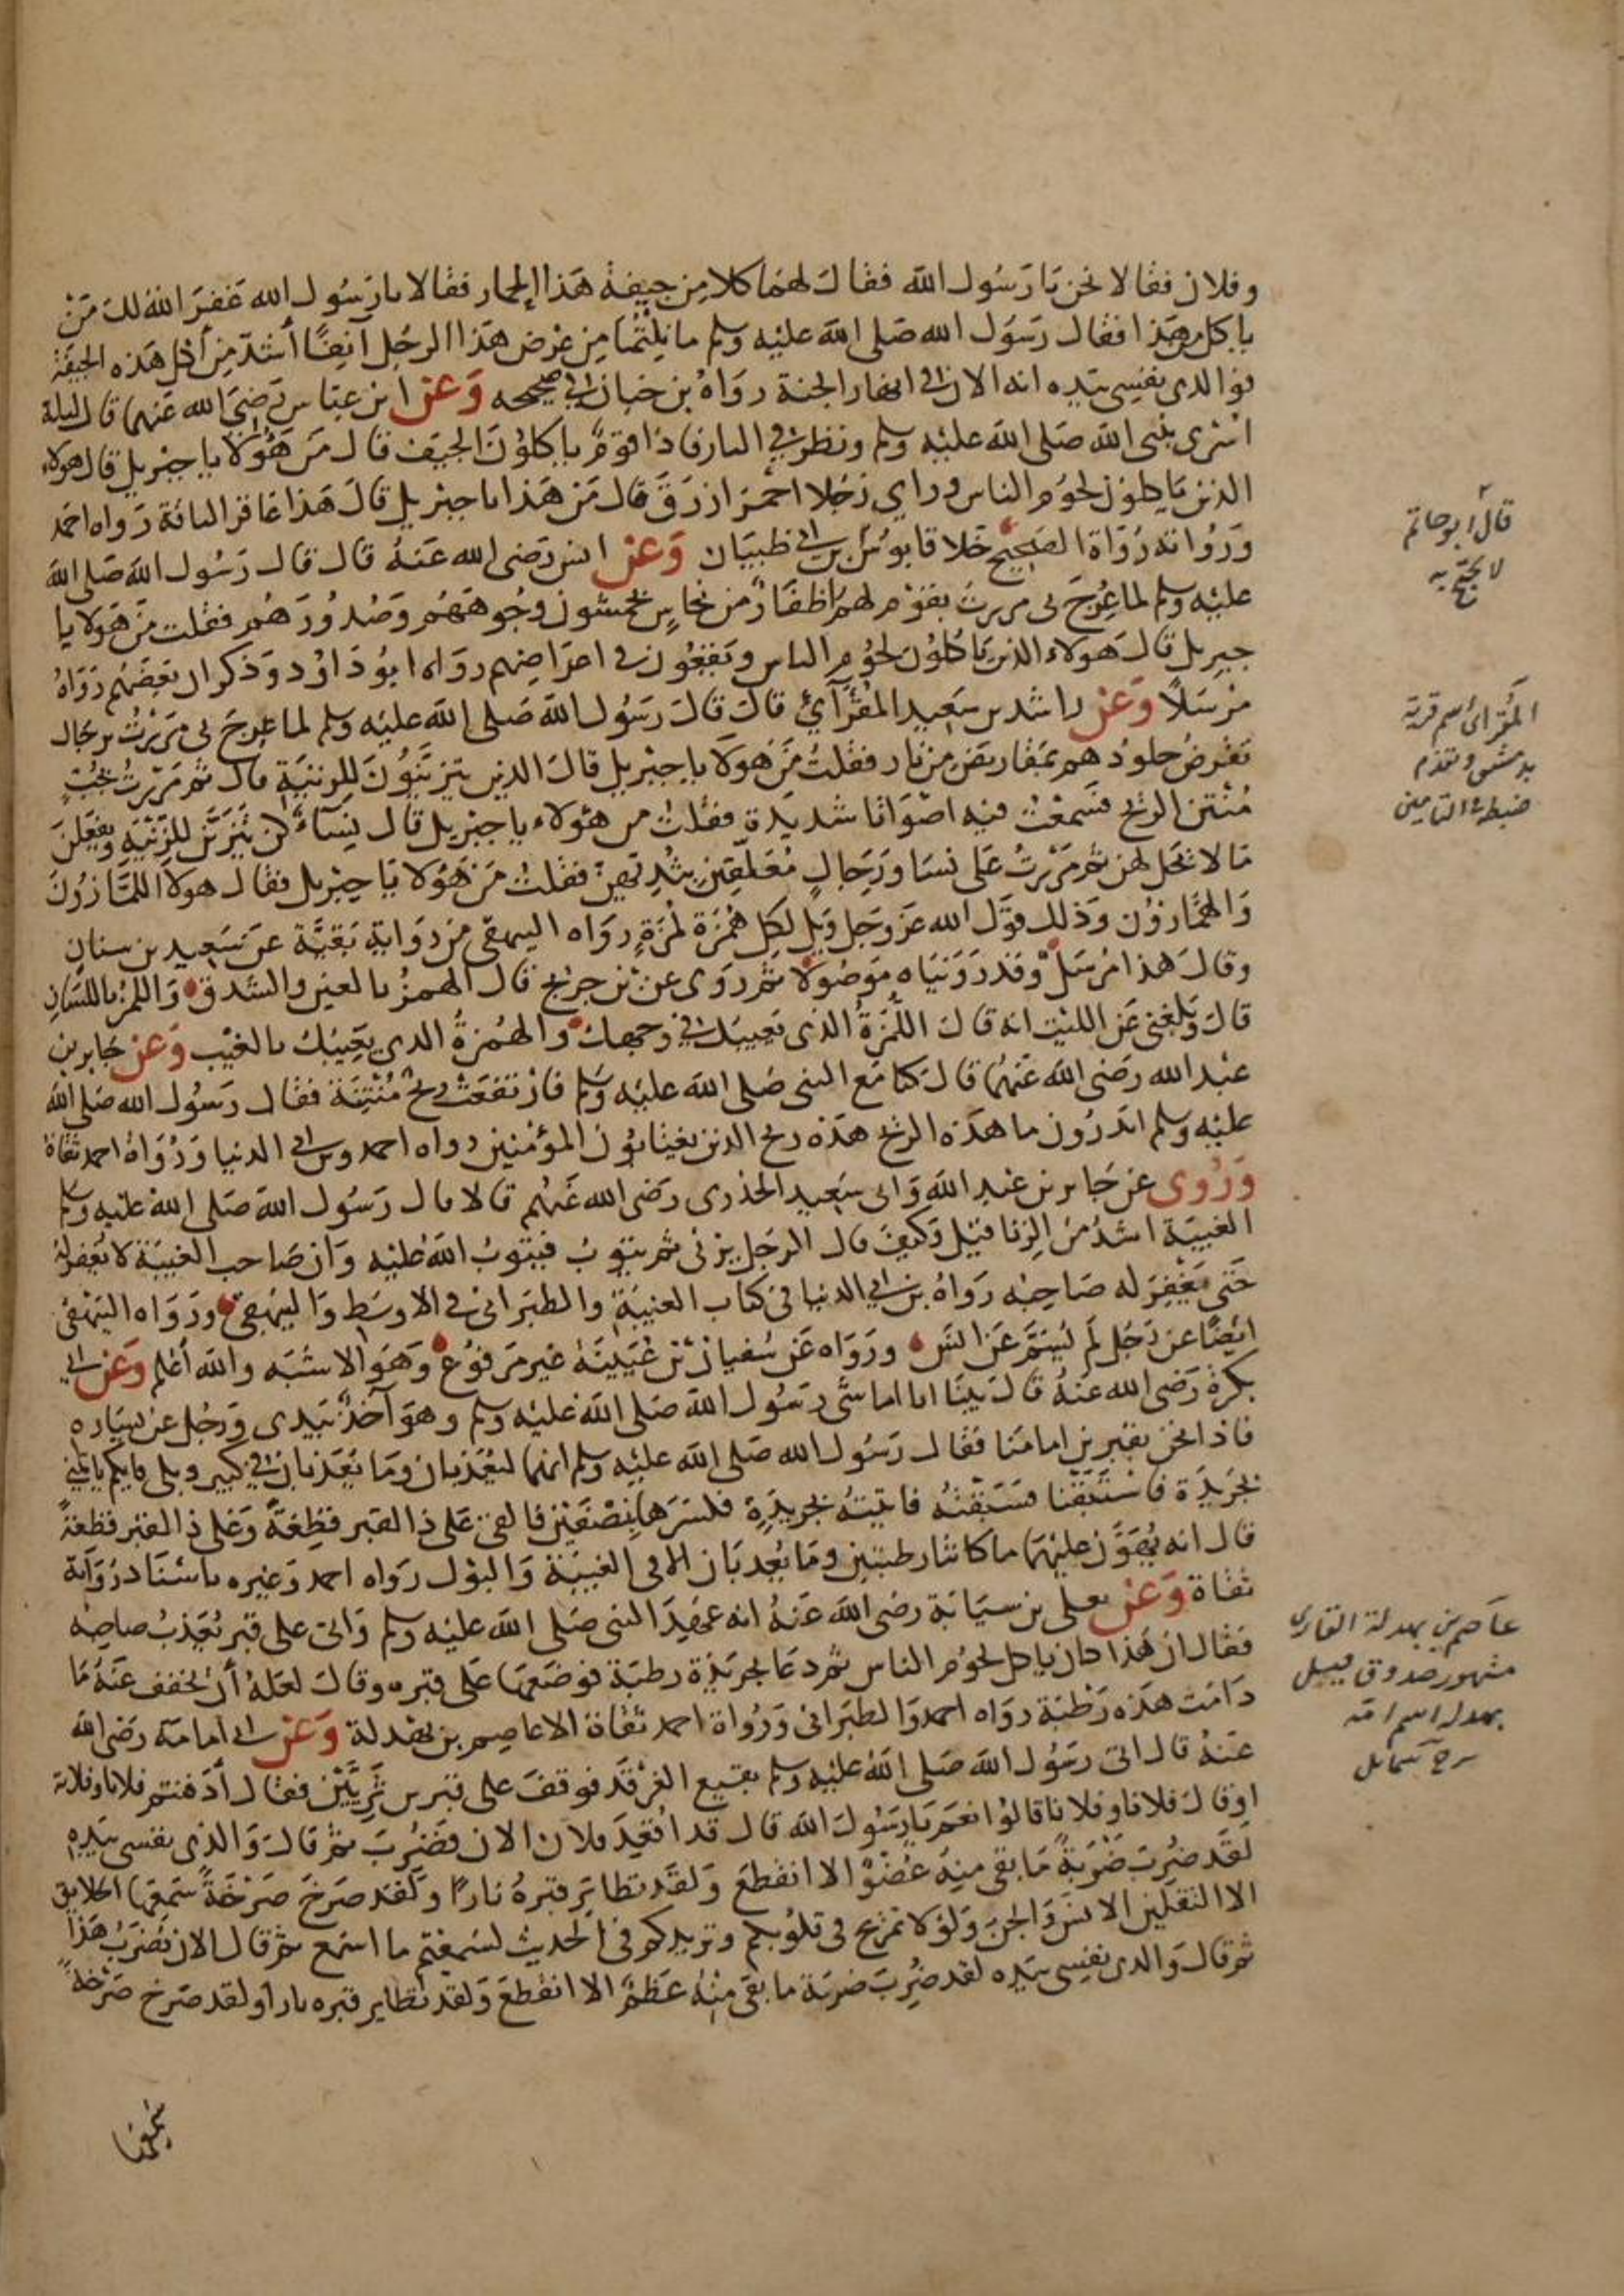 وفلان فقالا نحن يا رسول الله فقال لهما كلا من جيفة هذا الحمار فقالا يا رسول الله غفر الله لك من
ياكل من هذا فقال رسول الله صلى الله عليه وسلم ما نلتما من عرض هذا الرجل آنفا أشد من أكل هذه الجيفة
فوالذي نفسي بيده انه الان في انهار الجنة رواه بن حبان في صحيحه وعن ابن عباس رضي الله عنهما قال ليلة
اسري بنبي الله صلى الله عليه وسلم ونظر في النار فاذا قوم ياكلون الجيف قال من هؤلا يا جبريل قال هولاء
الذين ياكلون لحوم الناس وراي رجلا احمر ازرق قال من هذا يا جبريل قال هذا عاقر الناقة رواه احمد
ورواته رواة الصحيح خلا قابوس بن ابي ظبيان وعن انس رضي الله عنه قال قال رسول الله صلى الله
عليه وسلم لما عرج بي مررت بقوم لهم اظفار من نحاس يخمشون وجوههم وصدورهم فقلت من هولا يا
جبريل قال هولاء الذين ياكلون لحوم الناس ويقعون في اعراضهم رواه ابو داود وذكر ان بعضهم رواه
مرسلا وعن راشد بن سعيد المقرآئي قال قال رسول الله صلى الله عليه وسلم لما عرج بي مررت برجال
تقرض جلودهم بمقاريض من نار فقلت من هولا يا جبريل قال الذين يتزينون للزنية قال ثم مررت بجب
منتن الريح فسمعت فيه اصواتا شديدة فقلت من هؤلاء يا جبريل قال نساء كن يتزين للزنية ويفعلن
ما لا يحل لهن ثم مررت على نسا ورجال معلقين بثديهن فقلت من هؤلا يا جبريل فقال هولا اللمازون
والهمازون وذلك قول الله عز وجل ويل لكل همزة لمزة رواه البيهقي من رواية بقية عن سعيد بن سنان
وقال هذا مرسل وقد رويناه موصولا ثم روى عن بن جريج قال الهمز بالعين والشدق واللمز باللسان
قال وبلغني عن الليث انه قال اللمزة الذي يعيبك في وجهك والهمزة الذي يعيبك بالغيب وعن جابر بن
عبد الله رضي الله عنهما قال كنا مع النبي صلى الله عليه وسلم فارتفعت ريح منتنة فقال رسول الله صلى الله
عليه وسلم اتدرون ما هذه الريح هذه ريح الذين يغتابون المؤمنين رواه احمد وبن ابي الدنيا ورواة احمد ثقاة
وروى عن جابر بن عبد الله وابي سعيد الخدري رضي الله عنهم قالا قال رسول الله صلى الله عليه وسلم
الغيبة اشد من الزنا قيل وكيف قال الرجل يزني ثم يتوب فيتوب الله عليه وان صاحب الغيبة لا يغفر له
حتى يغفر له صاحبه رواه بن ابي الدنيا في كتاب الغيبة والطبراني في الاوسط والبيهقي ورواه البيهقي
ايضا عن رجل لم يسم عن انس ورواه عن سفيان بن عيينة غير مرفوع وهو الاشبه والله أعلم وعن ابي
بكرة رضي الله عنه قال بينا انا اماشي رسول الله صلى الله عليه وسلم وهو آخذ بيدي ورجل عن يساره
فاذا نحن بقبرين امامنا فقال رسول الله صلى الله عليه وسلم انهما ليعذبان وما يعذبان في كبير وبلى فايكم ياتيني
بجريدة فاستبقنا فسبقته فاتيته بجريدة فكسرها نصفين فالقى على ذا القبر قطعة وعلى ذا القبر قطعة
قال انه يهون عليهما ما كانتا رطبتين وما يعذبان الا في الغيبة والبول رواه احمد وغيره باسناد رواته
ثقاة وعن يعلى بن سيابة رضي الله عنه انه عهد النبي صلى الله عليه وسلم واتى على قبر يعذب صاحبه
فقال ان هذا كان ياكل لحوم الناس ثم دعا بجريدة رطبة فوضعها على قبره وقال لعله أن يخفف عنه ما
دامت هذه رطبة رواه احمد والطبراني ورواة احمد ثقاة الا عاصم بن بهدلة وعن ابي امامة رضي الله
عنه قال اتى رسول الله صلى الله عليه وسلم بقيع الغرقد فوقف على قبرين ثريين فقال أدفنتم فلانا وفلانة
او قال فلانا وفلانا قالوا نعم يا رسول الله قال قد اقعد فلان الان فضرب ثم قال والذي نفسي بيده
لقد ضرب ضربة ما بقي منه عضو الا انقطع ولقد تطاير قبره نارا ولقد صرخ صرخة سمعها الخلايق
الا الثقلين الانس والجن ولولا تمريج في قلوبكم وتزيدكم في الحديث لسمعتم ما اسمع ثم قال الان يضرب هذا
ثم قال والذي نفسي بيده لقد ضرب ضربة ما بقي منه عظم الا انقطع ولقد تطاير قبره نارا ولقد صرخ صرخة
سمعها
قال ابو حاتم
لا يحتج به
المقراى اسم قرية
بدمشق وتقدم
ضبطه في التامين
عاصم بن بهدلة القارى
مشهور صدوق قيل
بهدلة اسم امه